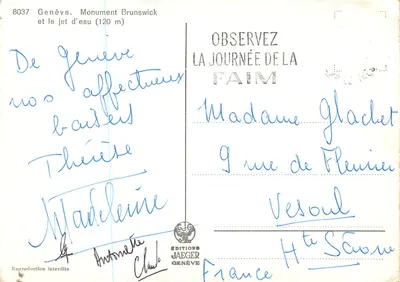 8037 Genève. Monument Brunswick
et le jet d'eau (120 m)
De Genève
nos affectueux
baisers
Thérèse
Madeleine
Antoinette
Claude
Reproduction interdite
EDITIONS
JAEGER
GENÈVE
OBSERVEZ
LA JOURNÉE DE LA
FAIM
Madame Glachet
9 rue de Fleurier
Vesoul
Hte Saône
France